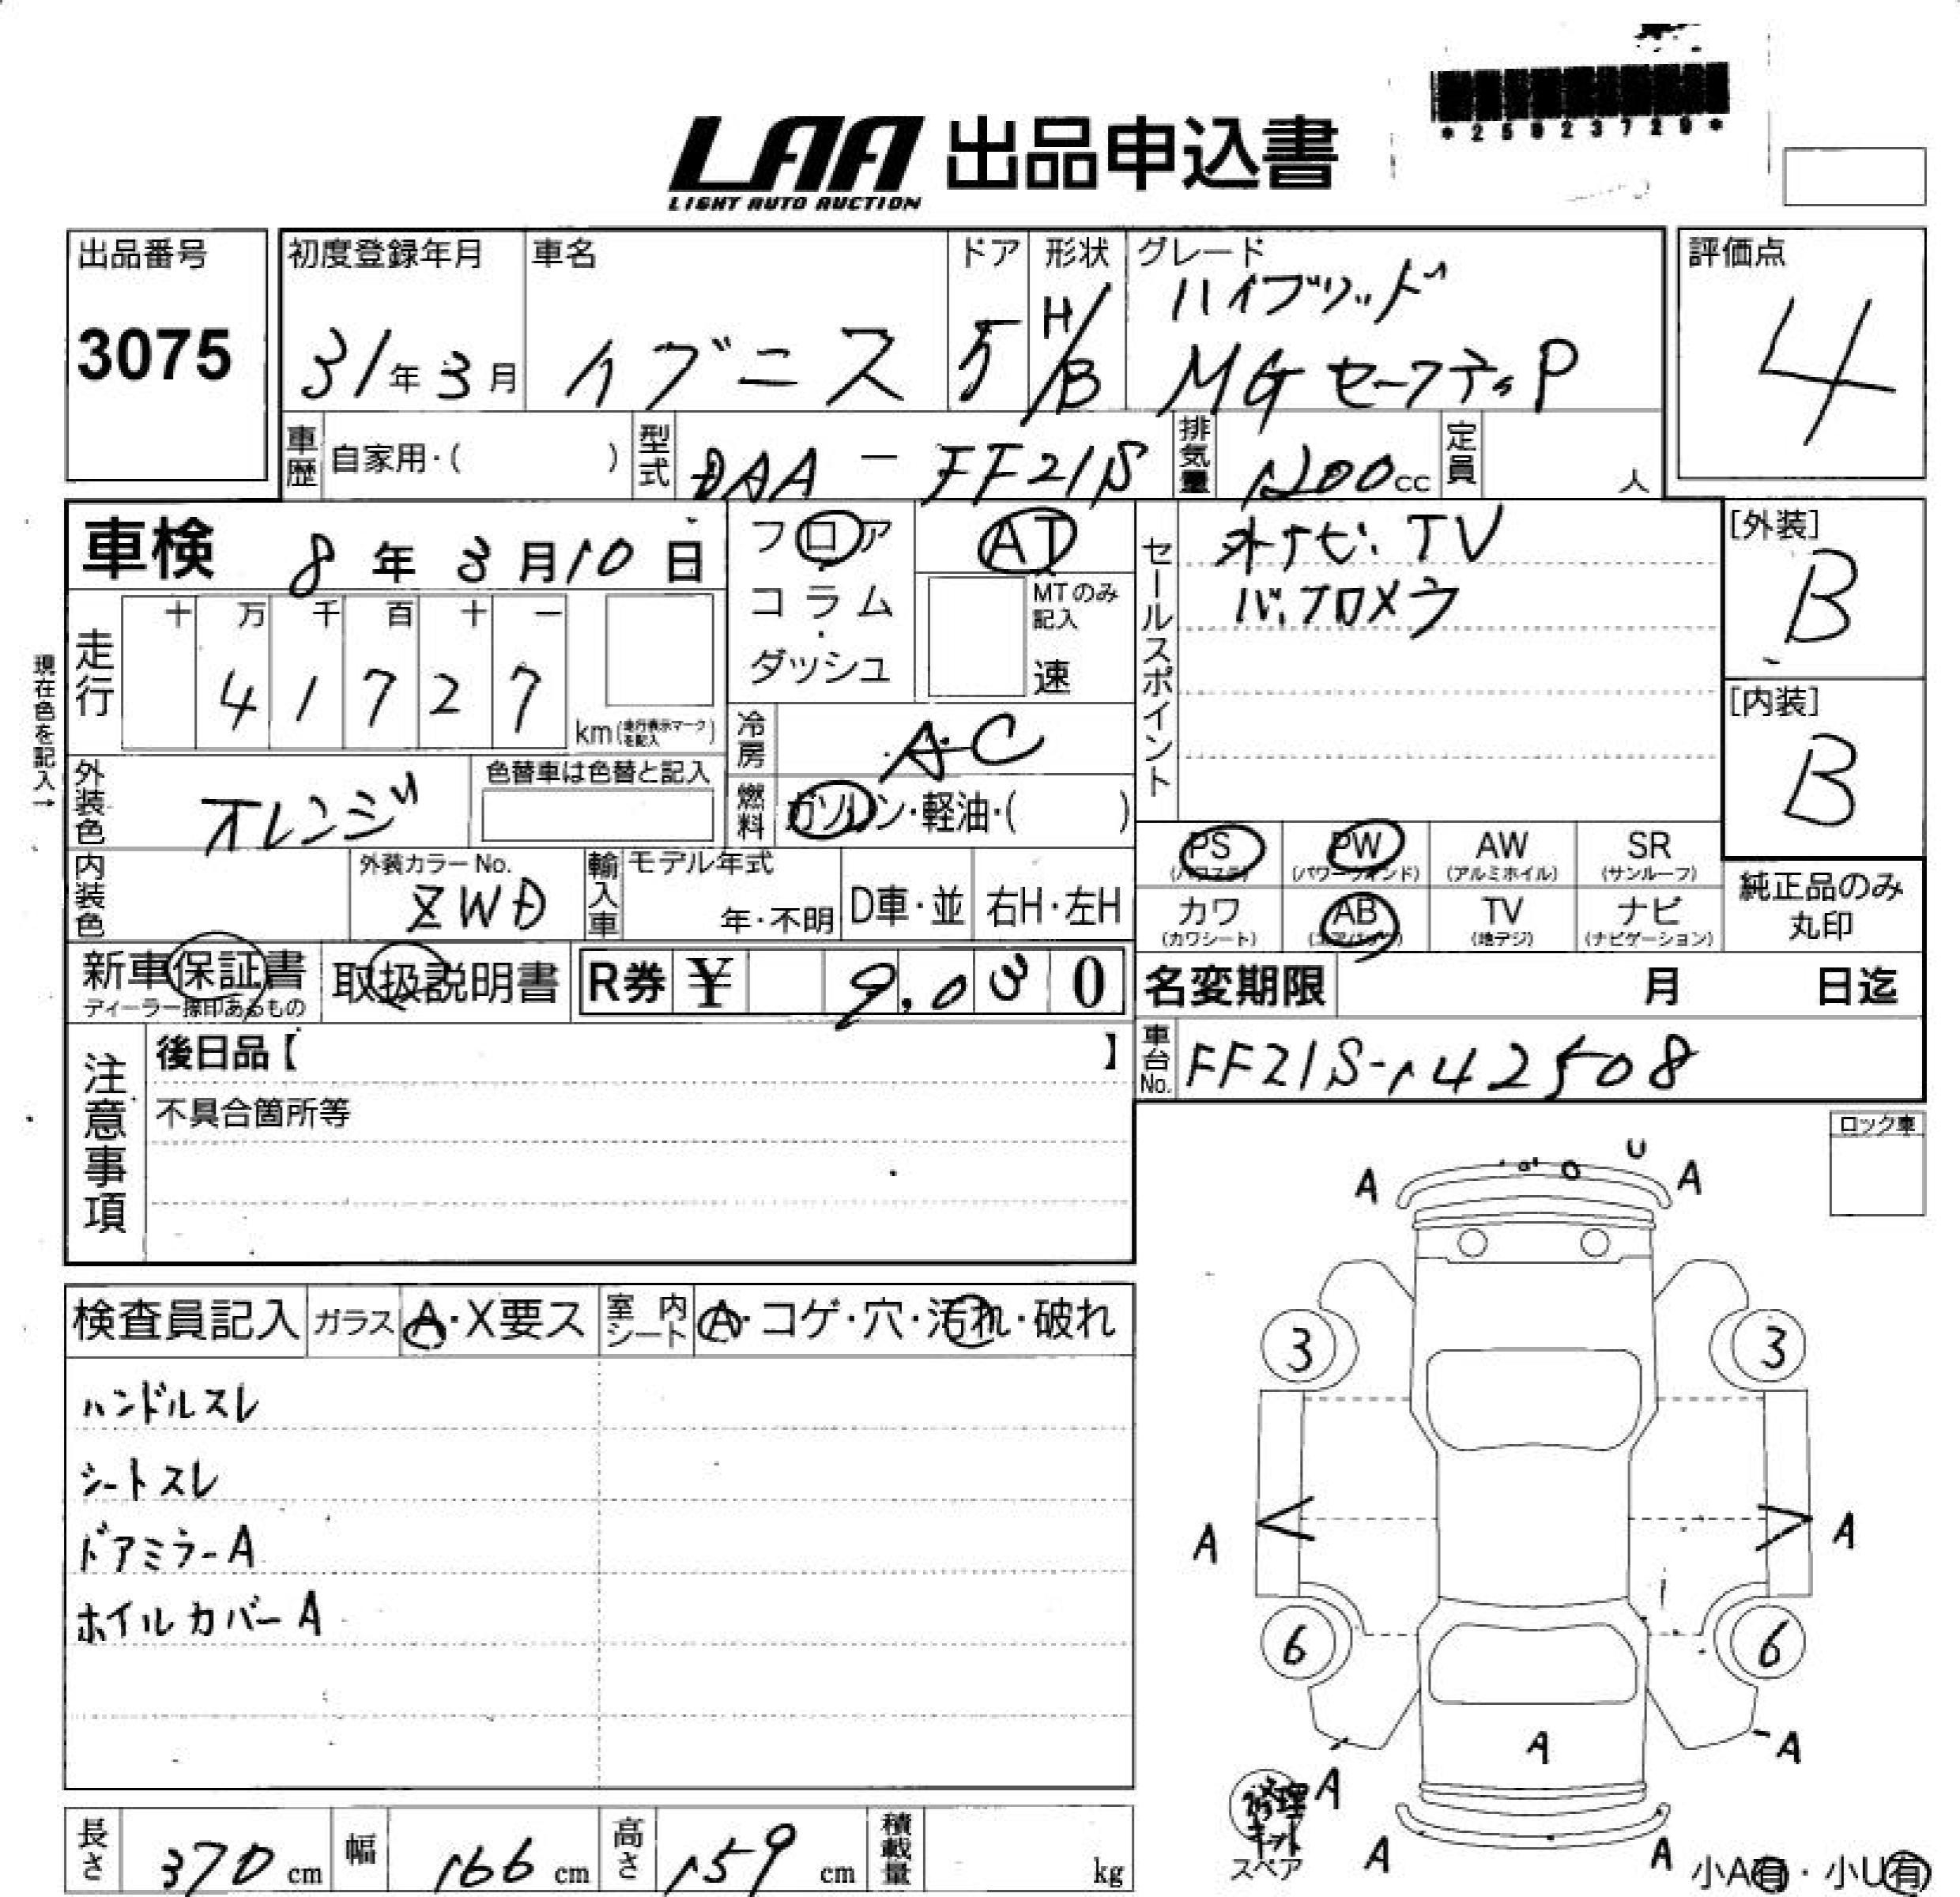 *25923729*
LAA 出品申込書
LIGHT AUTO AUCTION
出品番号
3075
初度登録年月
31年3月
車名
イグニス
ドア
5
形状
H/B
グレード
ハイブリッド
MGセーフティP
評価点
4
車歴 自家用・( )
型式 DAA-FF21S
排気量 1200cc
定員 人
車検 8年3月10日
フロア
コラム
・
ダッシュ
AT
MTのみ記入
速
セールスポイント
外ナビ.TV
バックロメラ
[外装]
B
[内装]
B
現在色を記入→
走行
十 万 千 百 十 一
4 1 7 2 7
km(走行表示マークを記入)
冷房 A・C
燃料 ガソリン・軽油・( )
外装色 オレンジ
色替車は色替と記入
内装色
外装カラーNo.
ZWD
輸入車
モデル年式
年・不明
D車・並
右H・左H
PS (パワステ)
PW (パワーウインド)
AW (アルミホイル)
SR (サンルーフ)
カワ (カワシート)
AB (エアバッグ)
TV (地デジ)
ナビ (ナビゲーション)
純正品のみ
丸印
新車保証書
ディーラー捺印あるもの
取扱説明書
R券 ¥ 9,030
名変期限 月 日迄
車台No. FF21S-142508
注意事項
後日品【 】
不具合箇所等
ロック車
検査員記入
ガラス A・X要ス
室内シート A・コゲ・穴・汚れ・破れ
ハンドルスレ
シートスレ
ドアミラーA
ホイルカバーA
U
A A
3 3
A A
6 6
A A
A
修理キット
スペア
A A
小A有・小U有
長さ 370cm
幅 166cm
高さ 159cm
積載量 kg